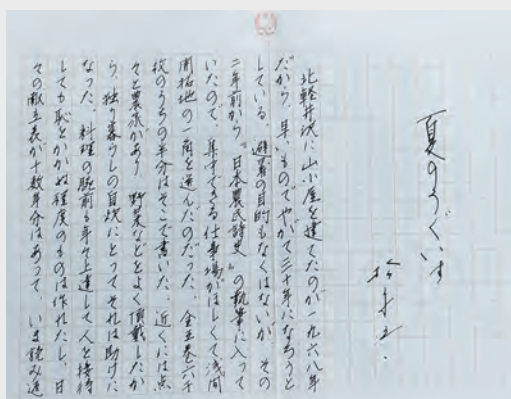 夏のうぐいす
松永伍一
北軽井沢に山小屋を建てたのが一九六八年
だから、早いものでやがて三十年になろうと
している。避暑の目的もなくはないが、その
二年前から『日本農民詩史』の執筆に入って
いたので、集中できる仕事場がほしくて浅間
開拓地の一角を選んだのだった。全五巻六千
枚のうちの半分はそこで書いた。近くには点
々と農家があり、野菜などをよく頂戴したか
ら、独り暮らしの自炊にとってそれは助けに
なった。料理の腕前も年々上達して人を接待
しても恥をかかぬ程度のものは作れたし、日
々の献立表が十数年分はあって、いま読み返